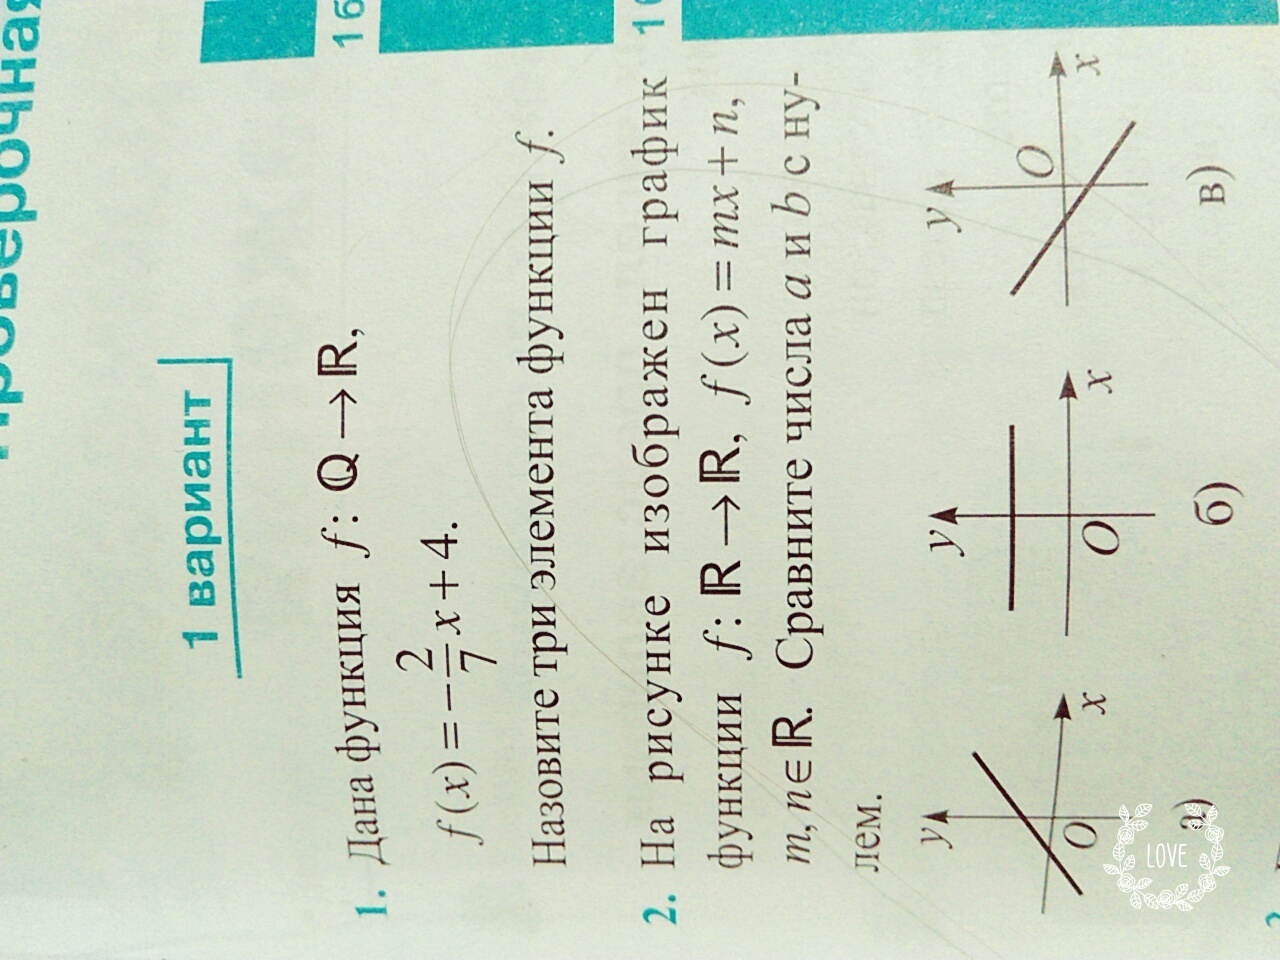 Проверочная
1 вариант
1б
1. Дана функция f: ℚ→ℝ,
f(x)=-2/7x+4.
Назовите три элемента функции f.
2. На рисунке изображен график
функции f: ℝ→ℝ, f(x)=mx+n,
m, n∈ℝ. Сравните числа a и b с ну-
лем.
y O x y O x y O x
а) б) в)
LOVE